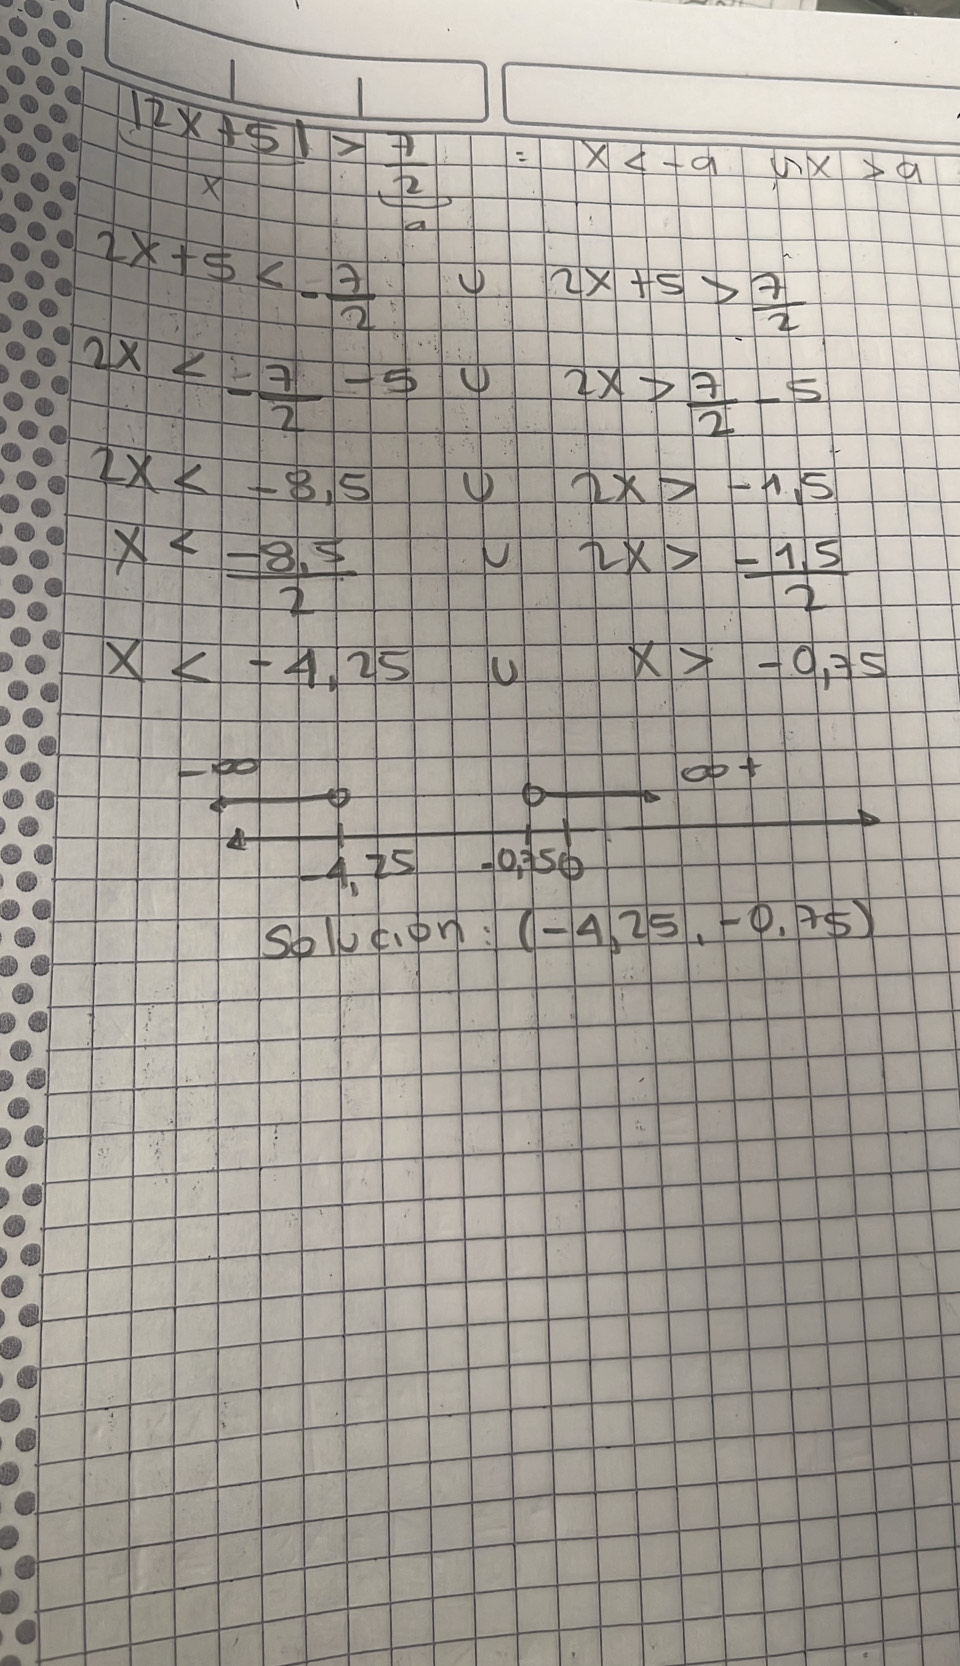 |2x+5| > 7/2 = x < -a ó x > a
x a
2x+5 < -7/2 ∪ 2x+5 > 7/2
2x < -7/2 -5 ∪ 2x > 7/2 -5
2x < -8,5 ∪ 2x > -1,5
x < -8,5/2 ∪ 2x > -1,5/2
x < -4,25 ∪ x > -0,75
-∞ ∞+
-4,25 -0,75 0
Solución: (-4,25, -0,75)